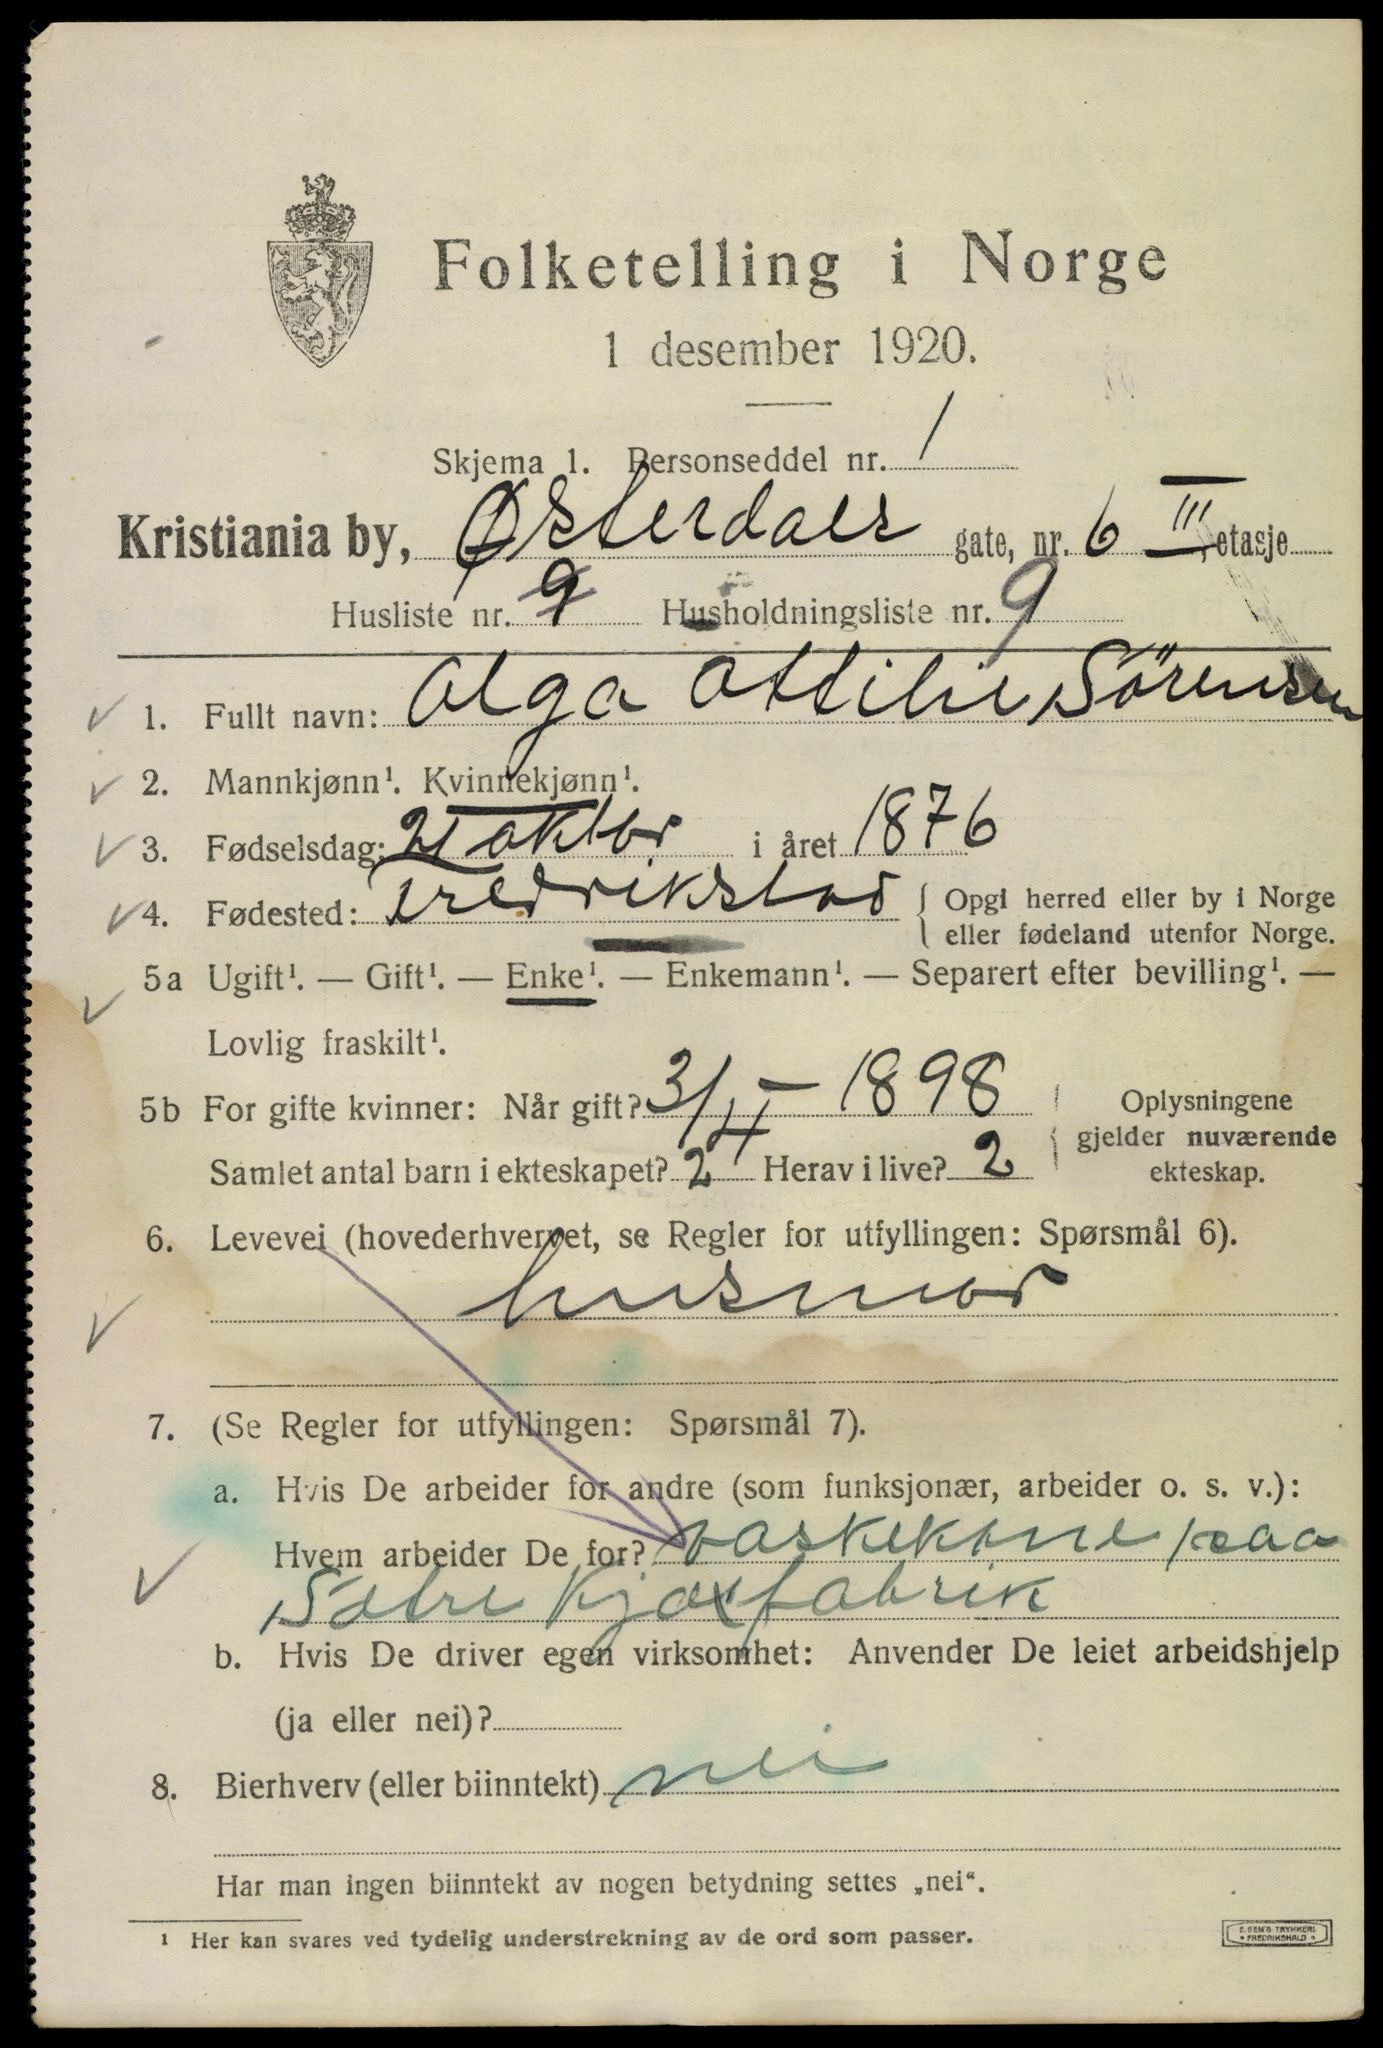 Folketelling i Norge
1 desember 1920.
Skjema 1. Personseddel nr. 1
Kristiania by, Østerdals gate, nr. 6 III, etasje
Husliste nr. 9 Husholdningsliste nr. 9
1. Fullt navn: Olga Ottilie Sörensen
2. Mannkjønn¹. Kvinnekjønn¹.
3. Fødselsdag: 21 oktbr i året 1876
4. Fødested: Fredrikstad { Opgi herred eller by i Norge
eller fødeland utenfor Norge.
5a Ugift¹. — Gift¹. — Enke¹. — Enkemann¹. — Separert efter bevilling¹. —
Lovlig fraskilt¹.
5b For gifte kvinner: Når gift? 3/4 - 1898
Samlet antal barn i ekteskapet? 2 Herav i live? 2
Oplysningene
gjelder nuværende
ekteskap.
6. Levevei (hovederhvervet, se Regler for utfyllingen: Spørsmål 6).
husmor
7. (Se Regler for utfyllingen: Spørsmål 7).
a. Hvis De arbeider for andre (som funksjonær, arbeider o. s. v.):
Hvem arbeider De for? vaskekone paa
Sætre Kjæxfabrik
b. Hvis De driver egen virksomhet: Anvender De leiet arbeidshjelp
(ja eller nei)?
8. Bierhverv (eller biinntekt) nei
Har man ingen biinntekt av nogen betydning settes „nei“.
¹ Her kan svares ved tydelig understrekning av de ord som passer.
TRYKKERI
FREDRIKSHALD